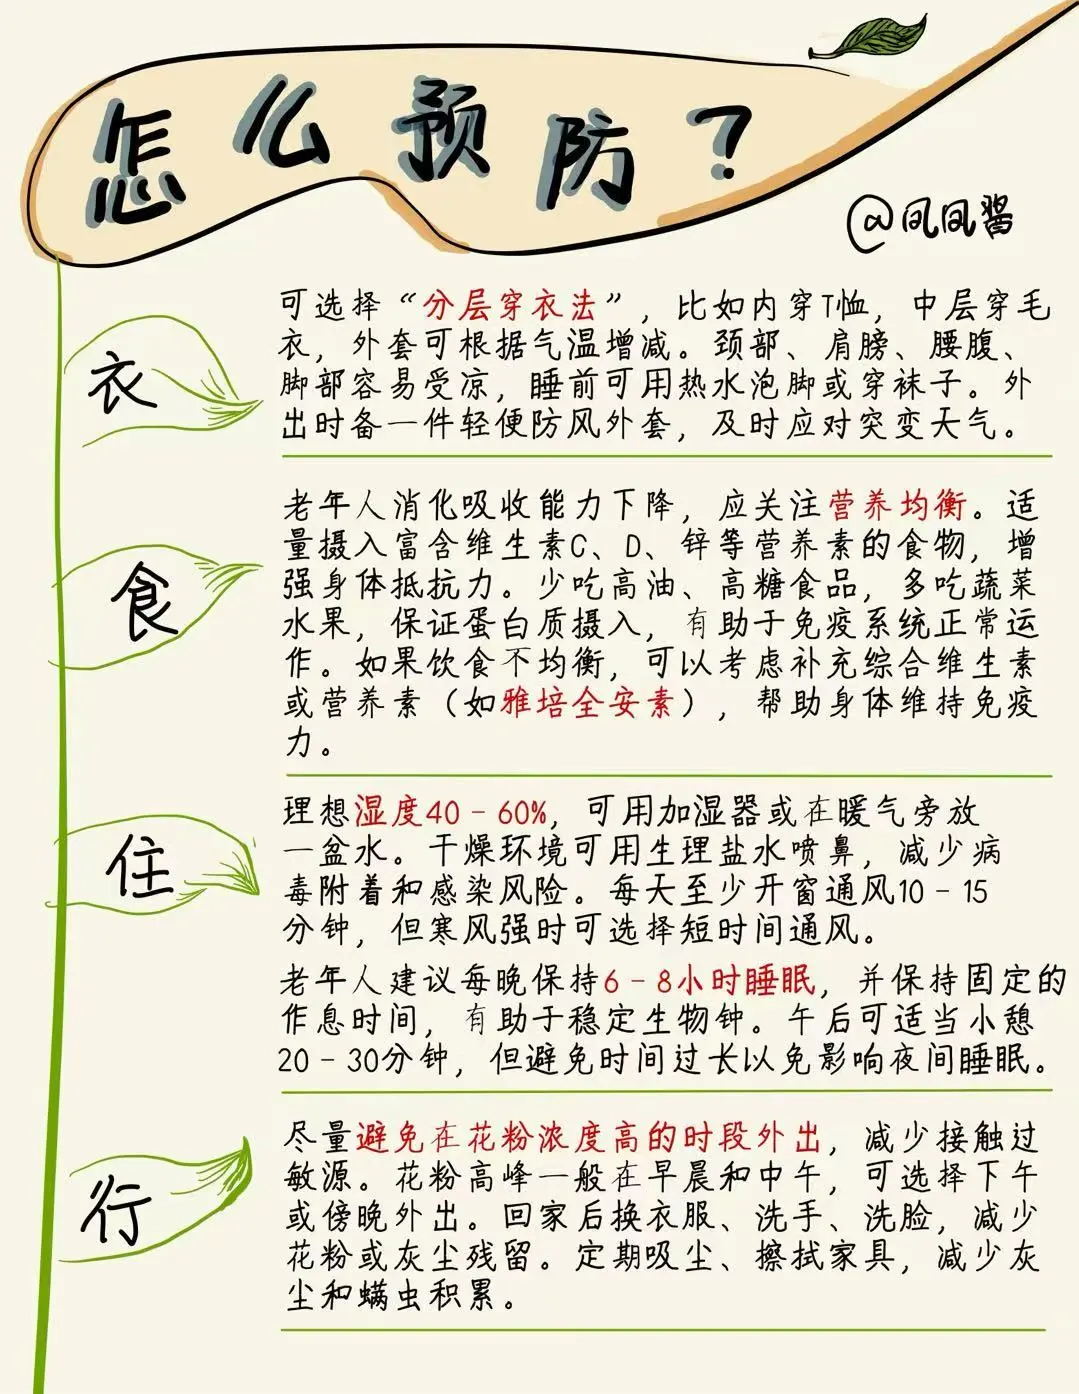 怎么预防?
@凤凤酱
衣
可选择“分层穿衣法”，比如内穿T恤，中层穿毛
衣，外套可根据气温增减。颈部、肩膀、腰腹、
脚部容易受凉，睡前可用热水泡脚或穿袜子。外
出时备一件轻便防风外套，及时应对突变天气。
食
老年人消化吸收能力下降，应关注营养均衡。适
量摄入富含维生素C、D、锌等营养素的食物，增
强身体抵抗力。少吃高油、高糖食品，多吃蔬菜
水果，保证蛋白质摄入，有助于免疫系统正常运
作。如果饮食不均衡，可以考虑补充综合维生素
或营养素（如雅培全安素），帮助身体维持免疫
力。
住
理想湿度40-60%，可用加湿器或在暖气旁放
一盆水。干燥环境可用生理盐水喷鼻，减少病
毒附着和感染风险。每天至少开窗通风10-15
分钟，但寒风强时可选择短时间通风。
老年人建议每晚保持6-8小时睡眠，并保持固定的
作息时间，有助于稳定生物钟。午后可适当小憩
20-30分钟，但避免时间过长以免影响夜间睡眠。
行
尽量避免在花粉浓度高的时段外出，减少接触过
敏源。花粉高峰一般在早晨和中午，可选择下午
或傍晚外出。回家后换衣服、洗手、洗脸，减少
花粉或灰尘残留。定期吸尘、擦拭家具，减少灰
尘和螨虫积累。